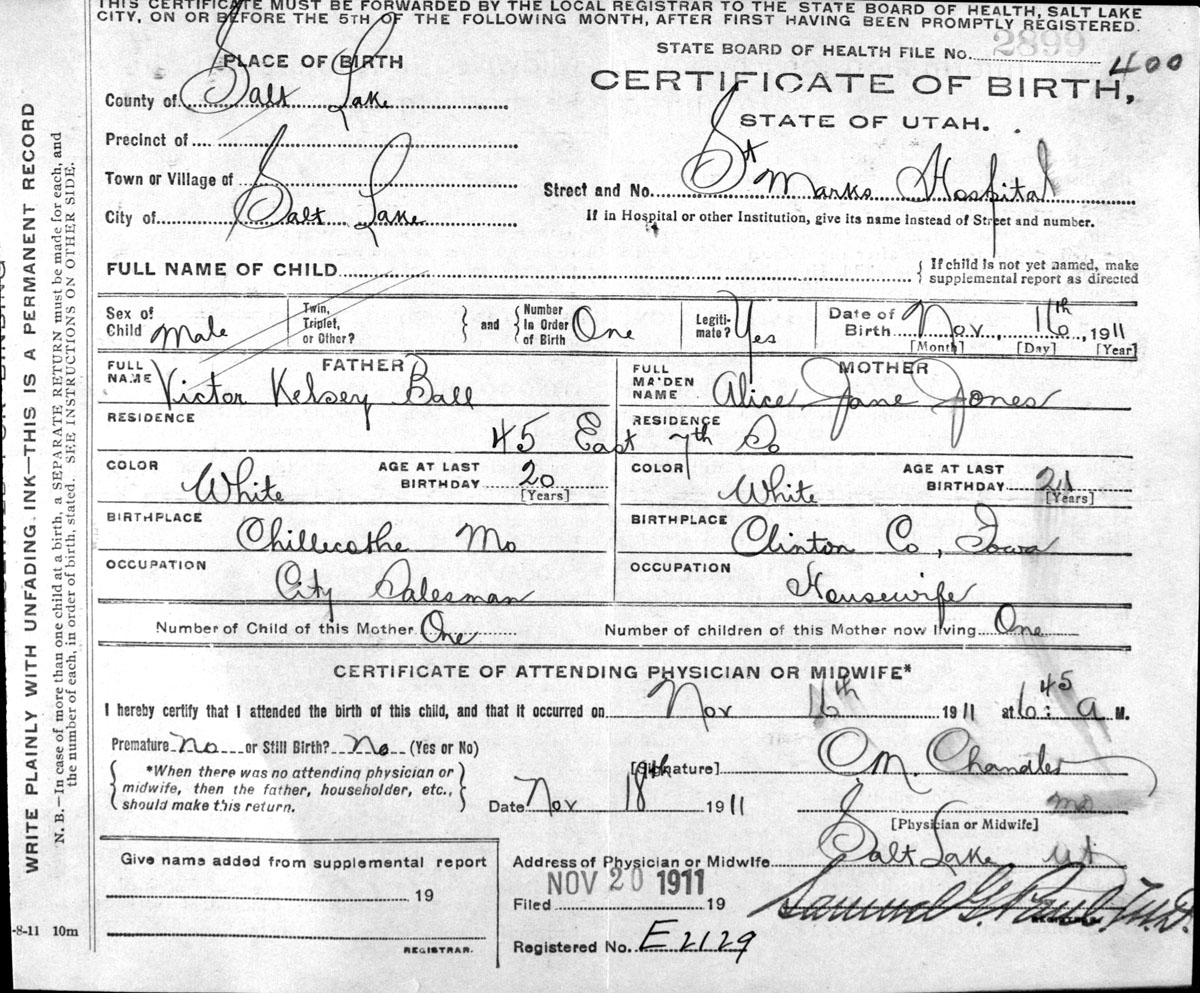 THIS CERTIFICATE MUST BE FORWARDED BY THE LOCAL REGISTRAR TO THE STATE BOARD OF HEALTH, SALT LAKE
CITY, ON OR BEFORE THE 5TH OF THE FOLLOWING MONTH, AFTER FIRST HAVING BEEN PROMPTLY REGISTERED.
STATE BOARD OF HEALTH FILE No. 2899
400
PLACE OF BIRTH
CERTIFICATE OF BIRTH,
STATE OF UTAH.
County of Salt Lake
Precinct of
Town or Village of
City of Salt Lake
Street and No. St Marks Hospital
If in Hospital or other Institution, give its name instead of Street and number.
FULL NAME OF CHILD
{ If child is not yet named, make
supplemental report as directed
Sex of Child Male
Twin, Triplet, or Other?
and
Number in Order of Birth One
Legiti-mate? Yes
Date of Birth Nov 16th, 1911
[Month] [Day] [Year]
FATHER
MOTHER
FULL NAME Victor Kelsey Ball
FULL MAIDEN NAME Alice Jane Jones
RESIDENCE
RESIDENCE
45 East 7th So
COLOR White AGE AT LAST BIRTHDAY 20 [Years]
COLOR White AGE AT LAST BIRTHDAY 21 [Years]
BIRTHPLACE Chillecothe Mo
BIRTHPLACE Clinton Co, Iowa
OCCUPATION City Salesman
OCCUPATION Housewife
Number of Child of this Mother One
Number of children of this Mother now living One
CERTIFICATE OF ATTENDING PHYSICIAN OR MIDWIFE*
I hereby certify that I attended the birth of this child, and that it occurred on Nov 16th 1911 at 6:45 a M.
Premature No or Still Birth? No (Yes or No)
{ *When there was no attending physician or
midwife, then the father, householder, etc.,
should make this return. }
[Signature] O M. Chandler
Date Nov 18th 1911
MD
[Physician or Midwife]
Address of Physician or Midwife Salt Lake Ut
Give name added from supplemental report
19
REGISTRAR.
NOV 20 1911
Filed 19
Samuel G. Paul, M.D.
Registered No. E2129
-8-11 10m
WRITE PLAINLY WITH UNFADING INK—THIS IS A PERMANENT RECORD
N. B.—In case of more than one child at a birth, a SEPARATE RETURN must be made for each, and
the number of each, in order of birth, stated. SEE INSTRUCTIONS ON OTHER SIDE.